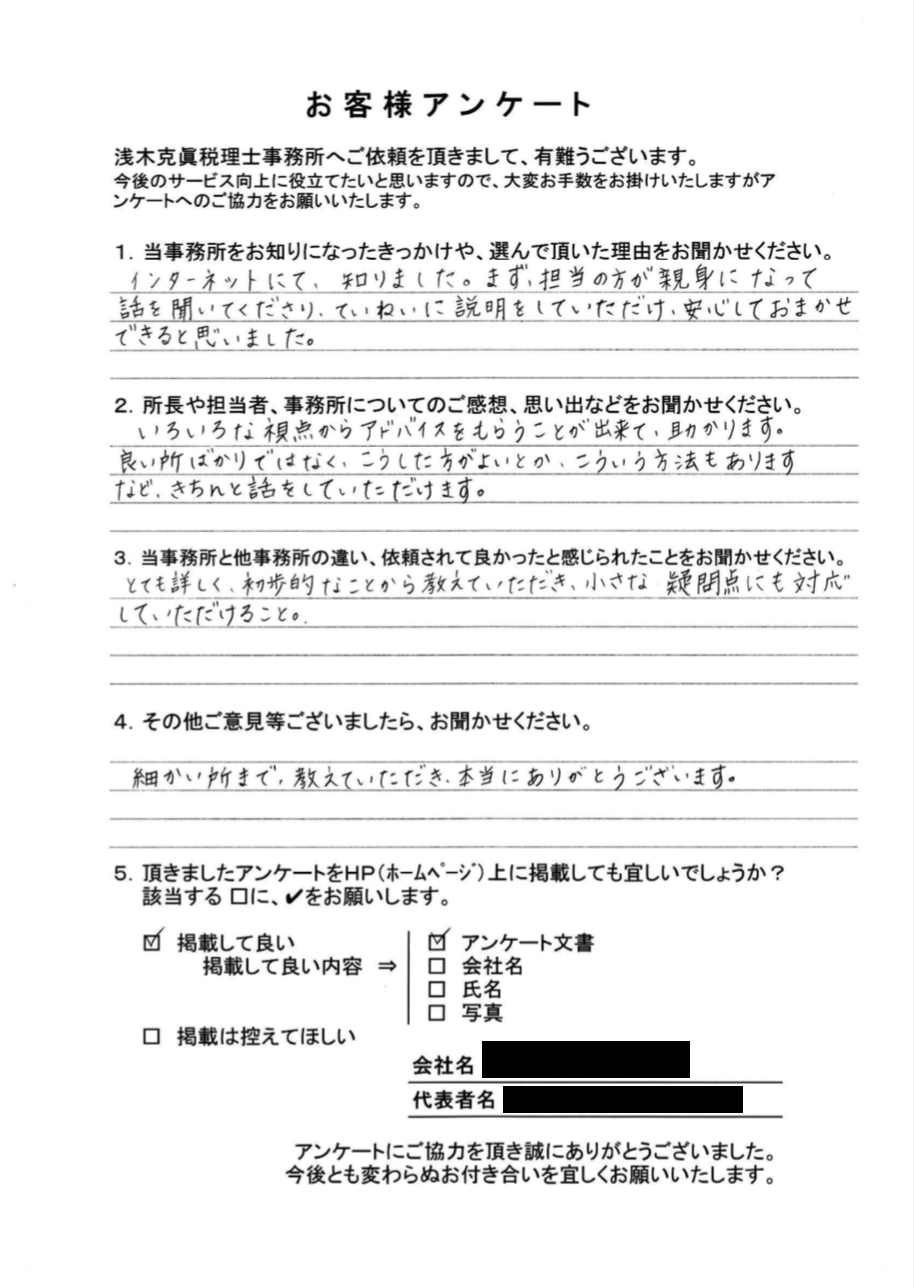 お客様アンケート
浅木克眞税理士事務所へご依頼を頂きまして、有難うございます。
今後のサービス向上に役立てたいと思いますので、大変お手数をお掛けいたしますがア
ンケートへのご協力をお願いいたします。
1. 当事務所をお知りになったきっかけや、選んで頂いた理由をお聞かせください。
インターネットにて、知りました。まず、担当の方が親身になって
話を聞いてくださり、ていねいに説明をしていただけ、安心しておまかせ
できると思いました。
2. 所長や担当者、事務所についてのご感想、思い出などをお聞かせください。
いろいろな視点からアドバイスをもらうことが出来て、助かります。
良い所ばかりではなく、こうした方がよいとか、こういう方法もあります
など、きちんと話をしていただけます。
3. 当事務所と他事務所の違い、依頼されて良かったと感じられたことをお聞かせください。
とても詳しく、初歩的なことから教えていただき、小さな疑問点にも対応
していただけること。
4. その他ご意見等ございましたら、お聞かせください。
細かい所まで、教えていただき、本当にありがとうございます。
5. 頂きましたアンケートをHP(ホームページ)上に掲載しても宜しいでしょうか?
該当する □に、✔をお願いします。
☑ 掲載して良い
掲載して良い内容 ⇒
☑ アンケート文書
□ 会社名
□ 氏名
□ 写真
□ 掲載は控えてほしい
会社名
代表者名
アンケートにご協力を頂き誠にありがとうございました。
今後とも変わらぬお付き合いを宜しくお願いいたします。